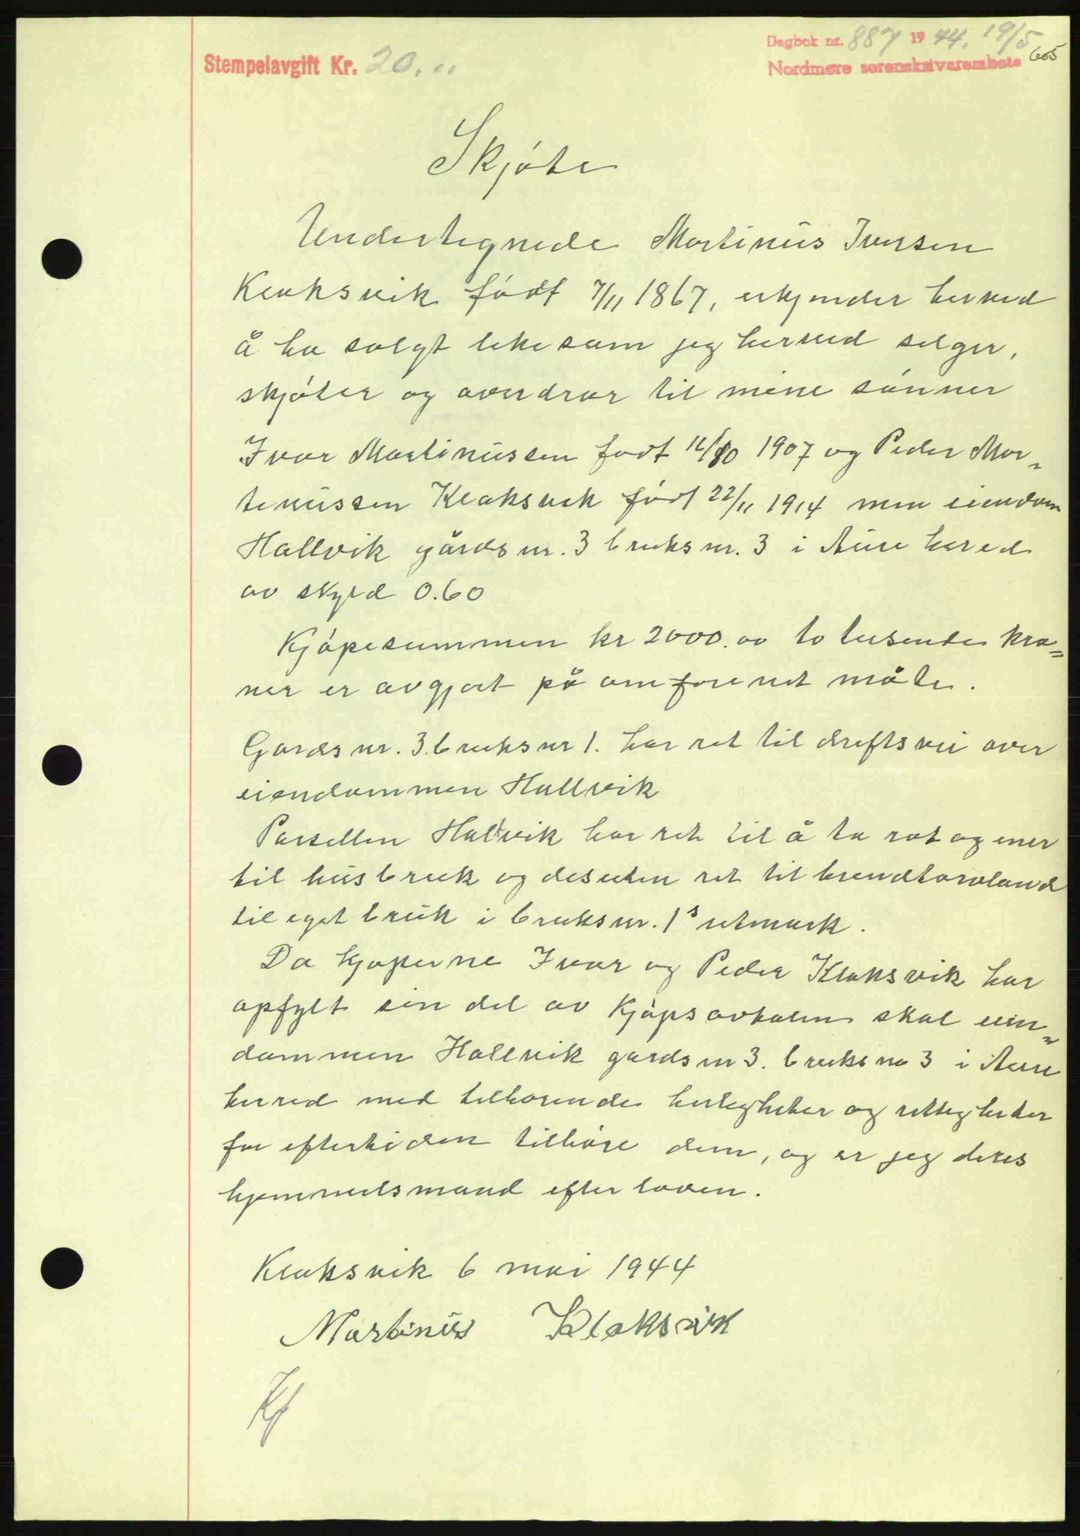 Dagbok nr. 887 1944. 19/5
605
Stempelavgift Kr. 20.00
Nordmøre sorenskriverembete
Skjöte
Undertegnede Martinus Iversen
Klaksvik födt 7/11 1867, erkjender herved
å ha solgt likesom jeg herved selger,
skjöter og overdrar til mine sönner
Ivar Martinussen födt 12/10 1907 og Peder Mar-
tinussen Klaksvik födt 22/11 1914 min eiendom
Hallvik gårdsnr. 3 bruksnr. 3 i Aure hered
av skyld 0.60
Kjöpesummen kr 2000.00 to tusende kro-
ner er avgjort på omforenet måte.
Gardsnr. 3 bruksnr 1. har ret til driftsvei over
eiendommen Hallvik
Parsellen Hallvik har ret til å ta rot og ener
til husbruk og desuten ret til brendtorvland
til eget bruk i bruksnr. 1s utmark.
Da kjöperne Ivar og Peder Klaksvik har
opfylt sin del av kjöpsavtalen skal eien-
dommen Hallvik gardsnr 3. bruksno 3 i Aure
herred med tilhörende herligheter og rettigheter
for eftertiden tilhöre dem, og er jeg deres
hjemmelsmand efter loven.
Klaksvik 6 mai 1944
Martinus Klaksvik